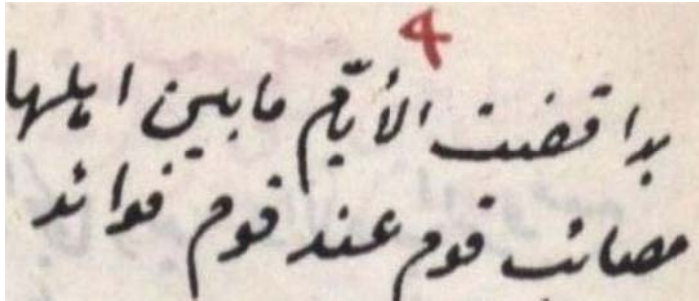 4
بدا قضت الأيّام ما بين اهلها
مصائب قوم عند قوم فوائد